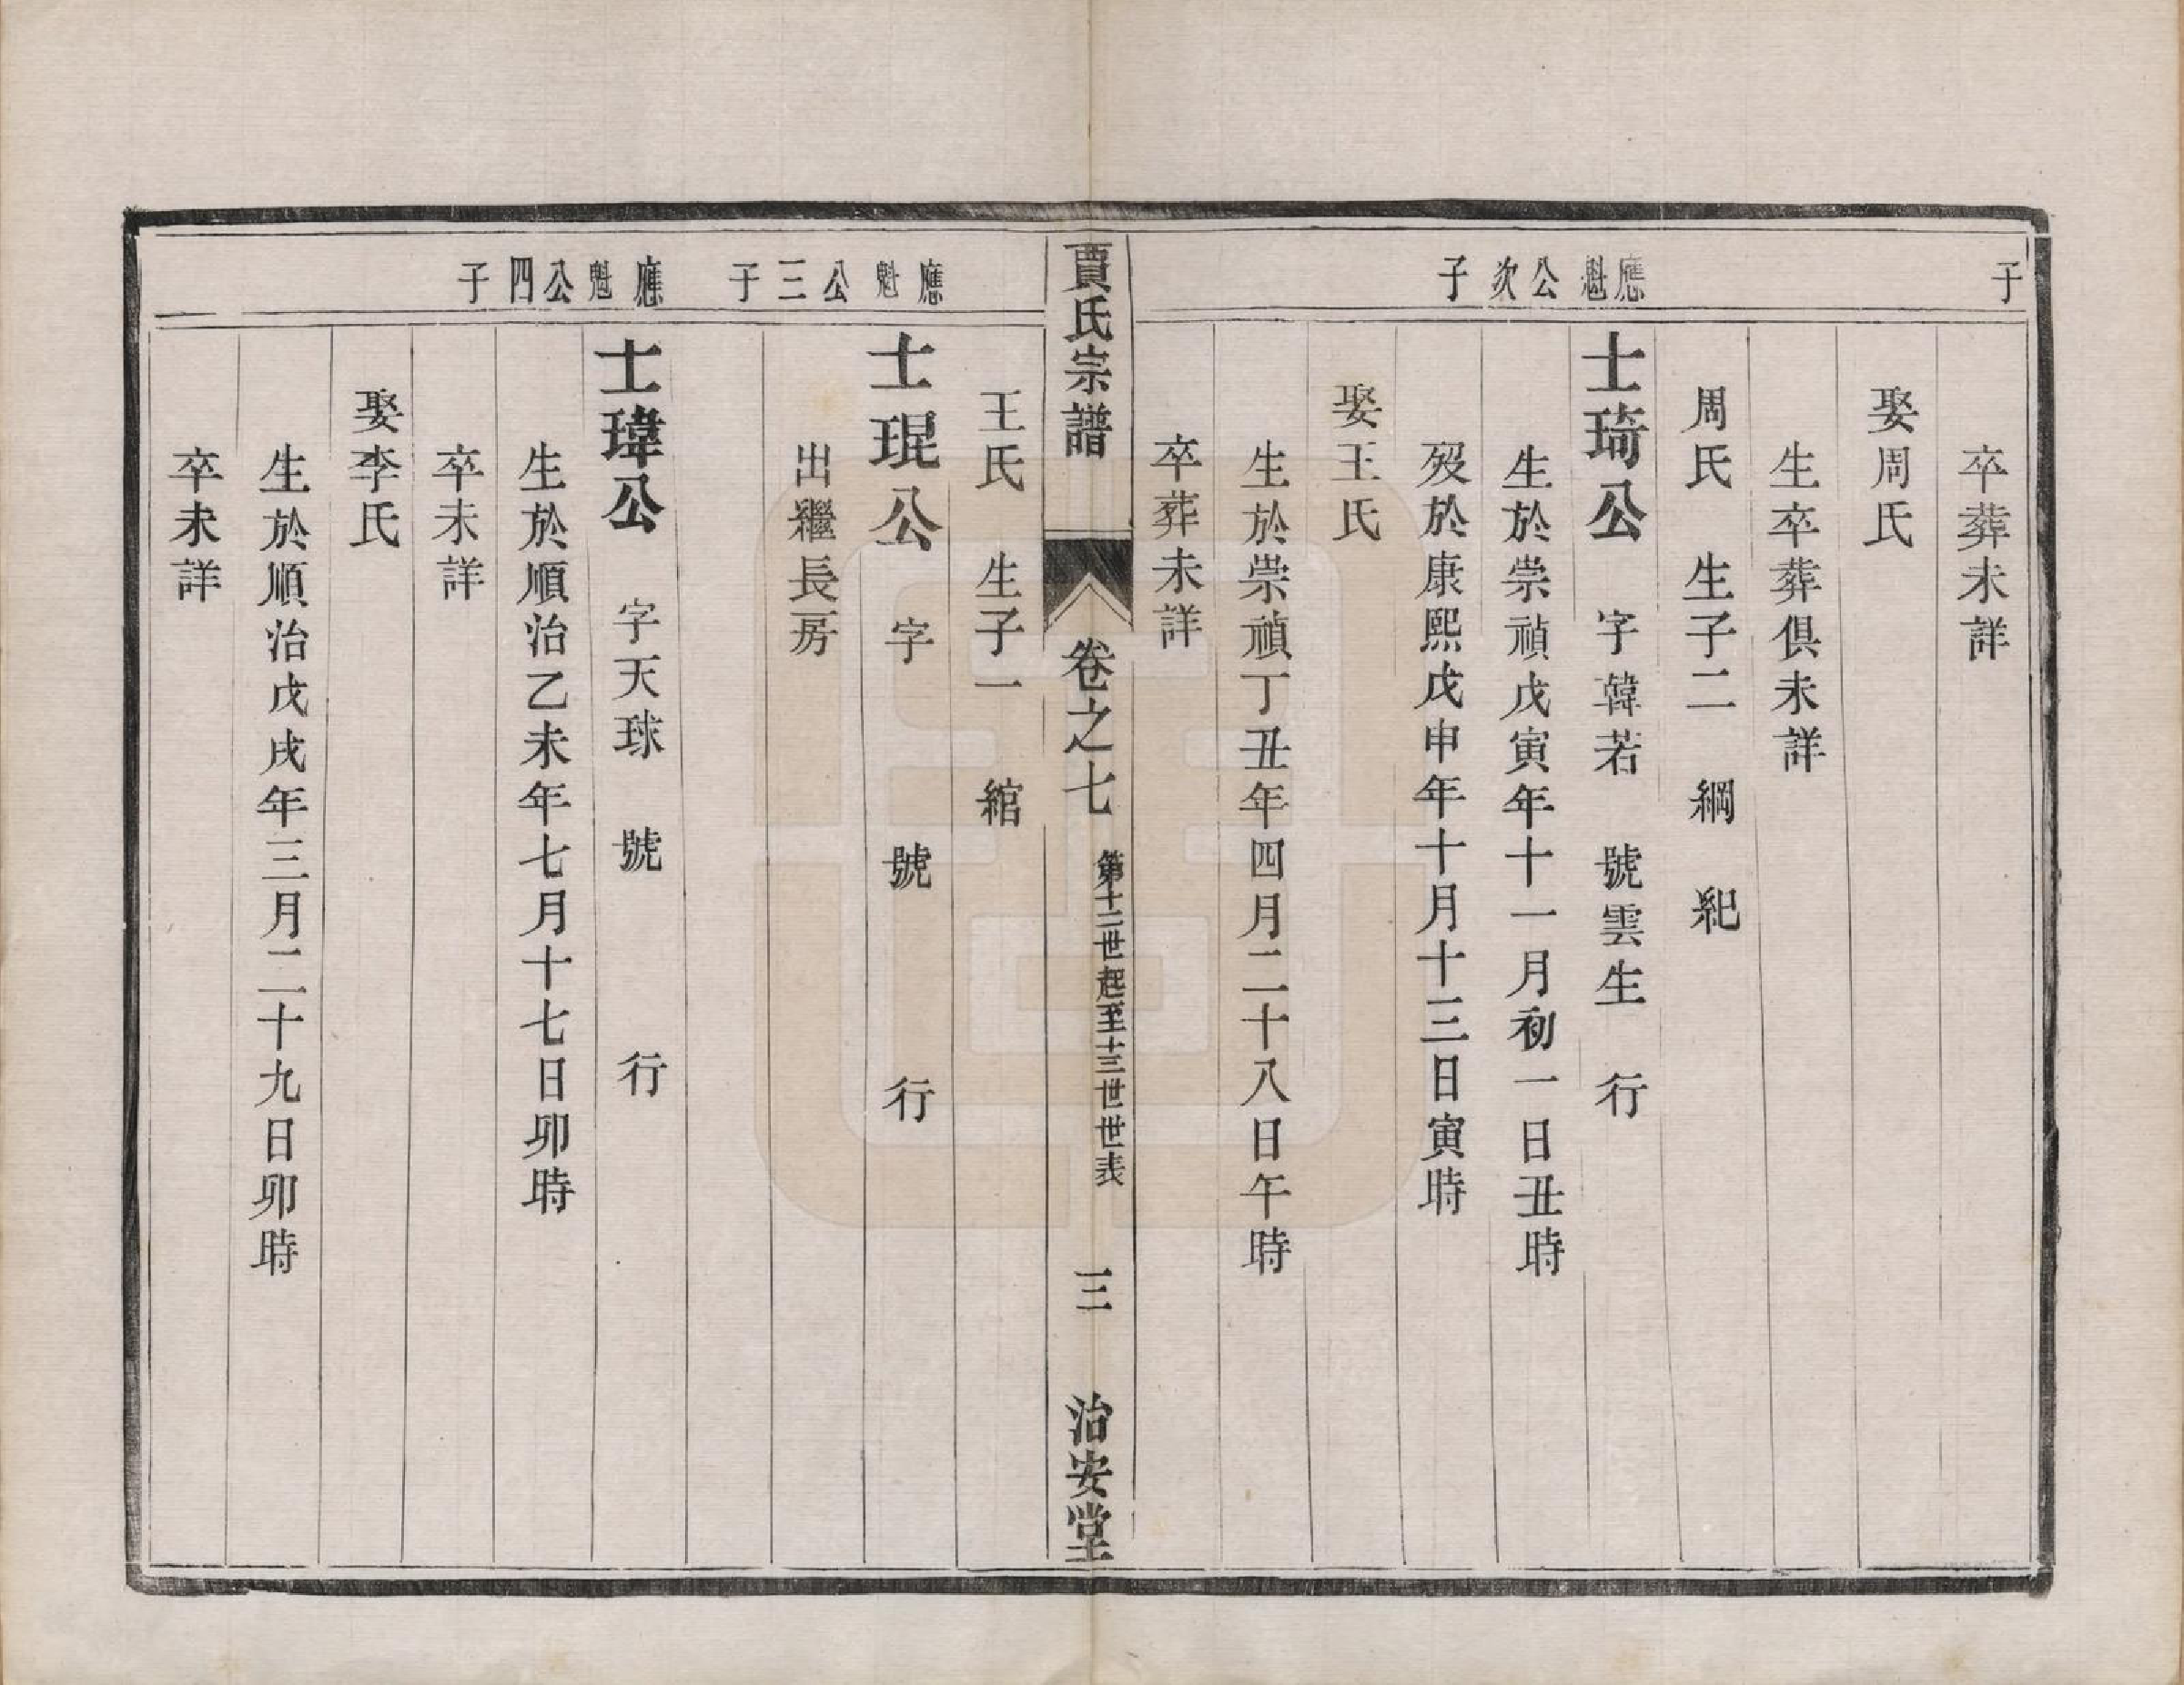 子
卒葬未詳
娶周氏
生卒葬俱未詳
周氏　生子二　綱　紀
應魁公次子
士琦公　字韓若　號雲生　行
生於崇禎戊寅年十一月初一日丑時
歿於康熙戊申年十月十三日寅時
娶王氏
生於崇禎丁丑年四月二十八日午時
卒葬未詳
賈氏宗譜　卷之七　第十二世起至十三世世表　三　治安堂
王氏　生子一　綰
應魁公三子
士琨公　字　號　行
出繼長房
應魁公四子
士瑋公　字天球　號　行
生於順治乙未年七月十七日卯時
卒未詳
娶李氏
生於順治戊戌年三月二十九日卯時
卒未詳